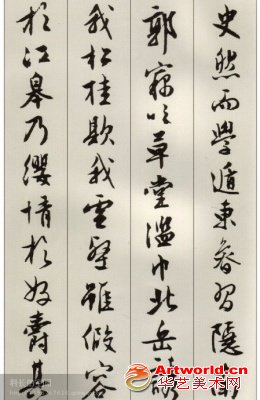 史然而學遁東魯習隱南
郭竊吹草堂濫巾北岳誘
我松桂欺我雲壑雖假容
於江皋乃纓情於好爵其
Artworld.cn
华艺美术网